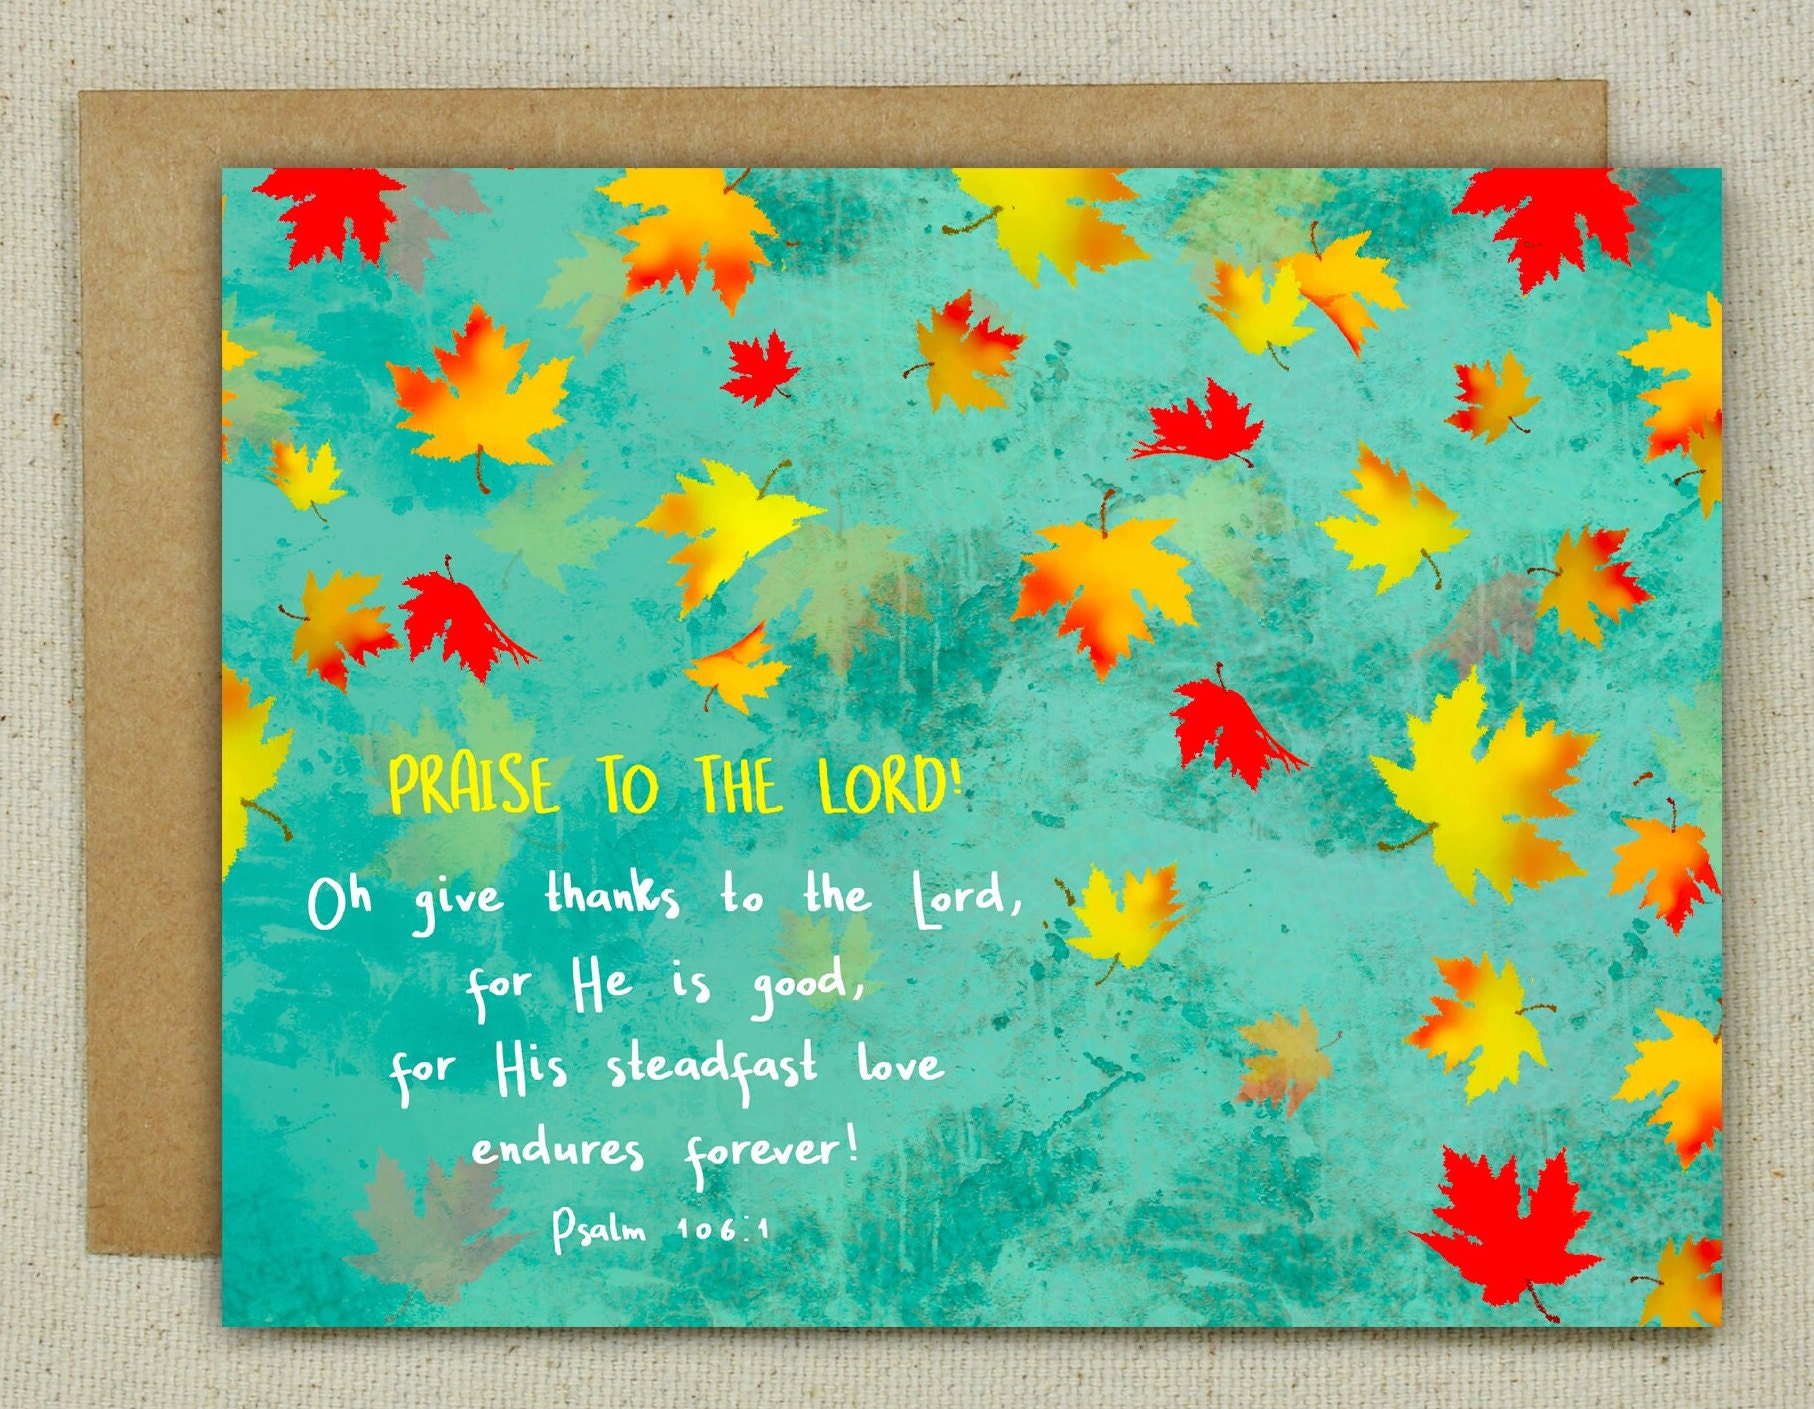 PRAISE TO THE LORD!
Oh give thanks to the Lord,
for He is good,
for His steadfast love
endures forever!
Psalm 106:1